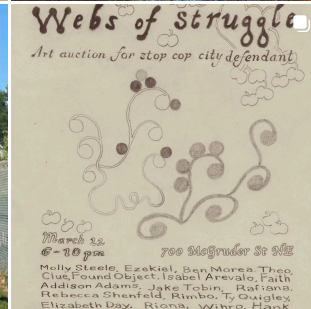 Webs of struggle
Art auction for stop cop city defendant
March 12
6-10pm
700 McGruder St NE
Molly Steele, Ezekiel, Ben Morea, Theo
Clue, Found Object, Isabel Arevalo, Faith
Addison Adams, Jake Tobin, Rafiana,
Rebecca Shenfeld, Rimbo, Ty Quigley,
Elizabeth Day, Riona, Wihro, Hank